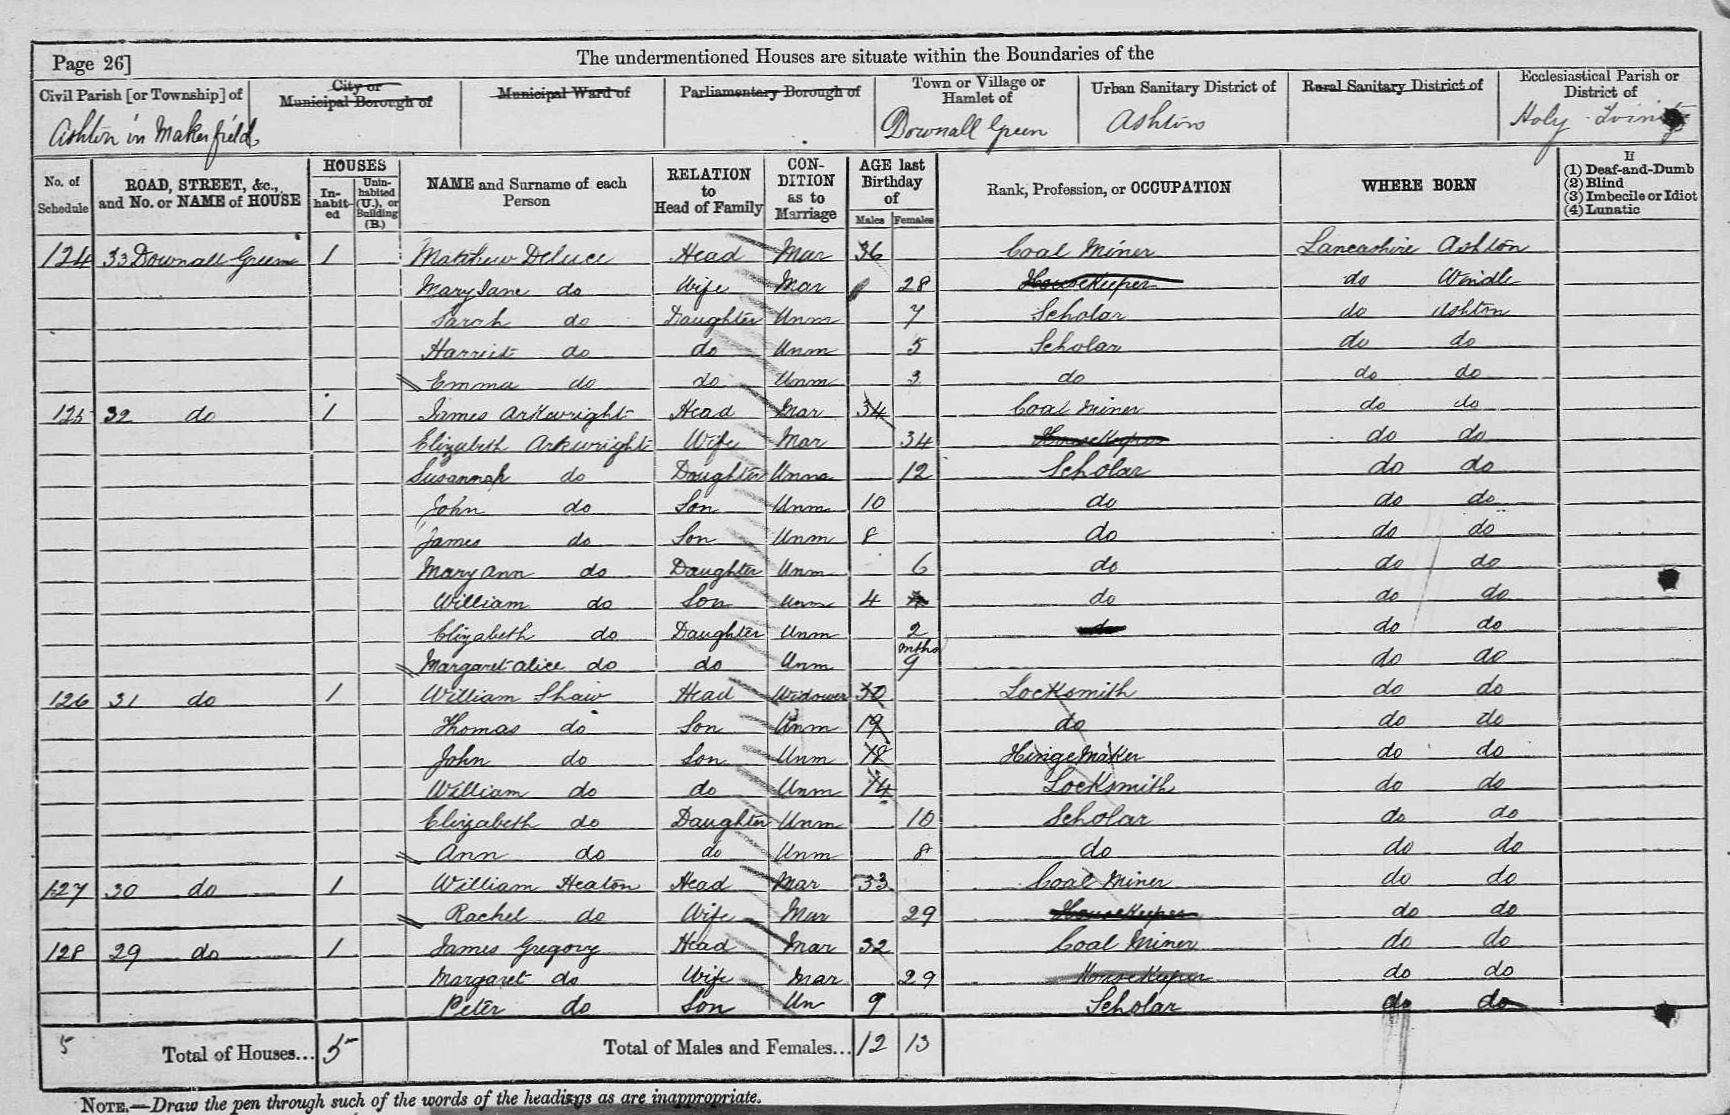 Page 26] The undermentioned Houses are situate within the Boundaries of the
Civil Parish [or Township] of City or Municipal Borough of Municipal Ward of Parliamentary Borough of Town or Village or Hamlet of Urban Sanitary District of Rural Sanitary District of Ecclesiastical Parish or District of
Ashton in Makerfield Downall Green Ashton Holy Trinity
No. of Schedule ROAD, STREET, &c., and No. or NAME of HOUSE HOUSES Inhabited Uninhabited (U.), or Building (B.) NAME and Surname of each Person RELATION to Head of Family CONDITION as to Marriage AGE last Birthday of Males Females Rank, Profession, or OCCUPATION WHERE BORN If (1) Deaf-and-Dumb (2) Blind (3) Imbecile or Idiot (4) Lunatic
124 33 Downall Green 1 Matthew Deluce Head Mar 36 Coal Miner Lancashire Ashton
Mary Jane do Wife Mar 28 Housekeeper do Windle
Sarah do Daughter Unm 7 Scholar do Ashton
Harriet do do Unm 5 Scholar do do
Emma do do Unm 3 do do do
125 32 do 1 James Arkwright Head Mar 34 Coal Miner do do
Elizabeth Arkwright Wife Mar 34 Housekeeper do do
Susannah do Daughter Unm 12 Scholar do do
John do Son Unm 10 do do do
James do Son Unm 8 do do do
Mary Ann do Daughter Unm 6 do do do
William do Son Unm 4 do do do
Elizabeth do Daughter Unm 2 do do do
Margaret Alice do do Unm mths 9 do do
126 31 do 1 William Shaw Head Widower Locksmith do do
Thomas do Son Unm 19 do do do
John do Son Unm 18 Hinge Maker do do
William do do Unm 14 Locksmith do do
Elizabeth do Daughter Unm 10 Scholar do do
Ann do do Unm 8 do do do
127 30 do 1 William Heaton Head Mar 33 Coal Miner do do
Rachel do Wife Mar 29 Housekeeper do do
128 29 do 1 James Gregory Head Mar 32 Coal Miner do do
Margaret do Wife Mar 29 Housekeeper do do
Peter do Son Un 9 Scholar do do
5 Total of Houses... 5 Total of Males and Females... 12 13
NOTE.—Draw the pen through such of the words of the headings as are inappropriate.